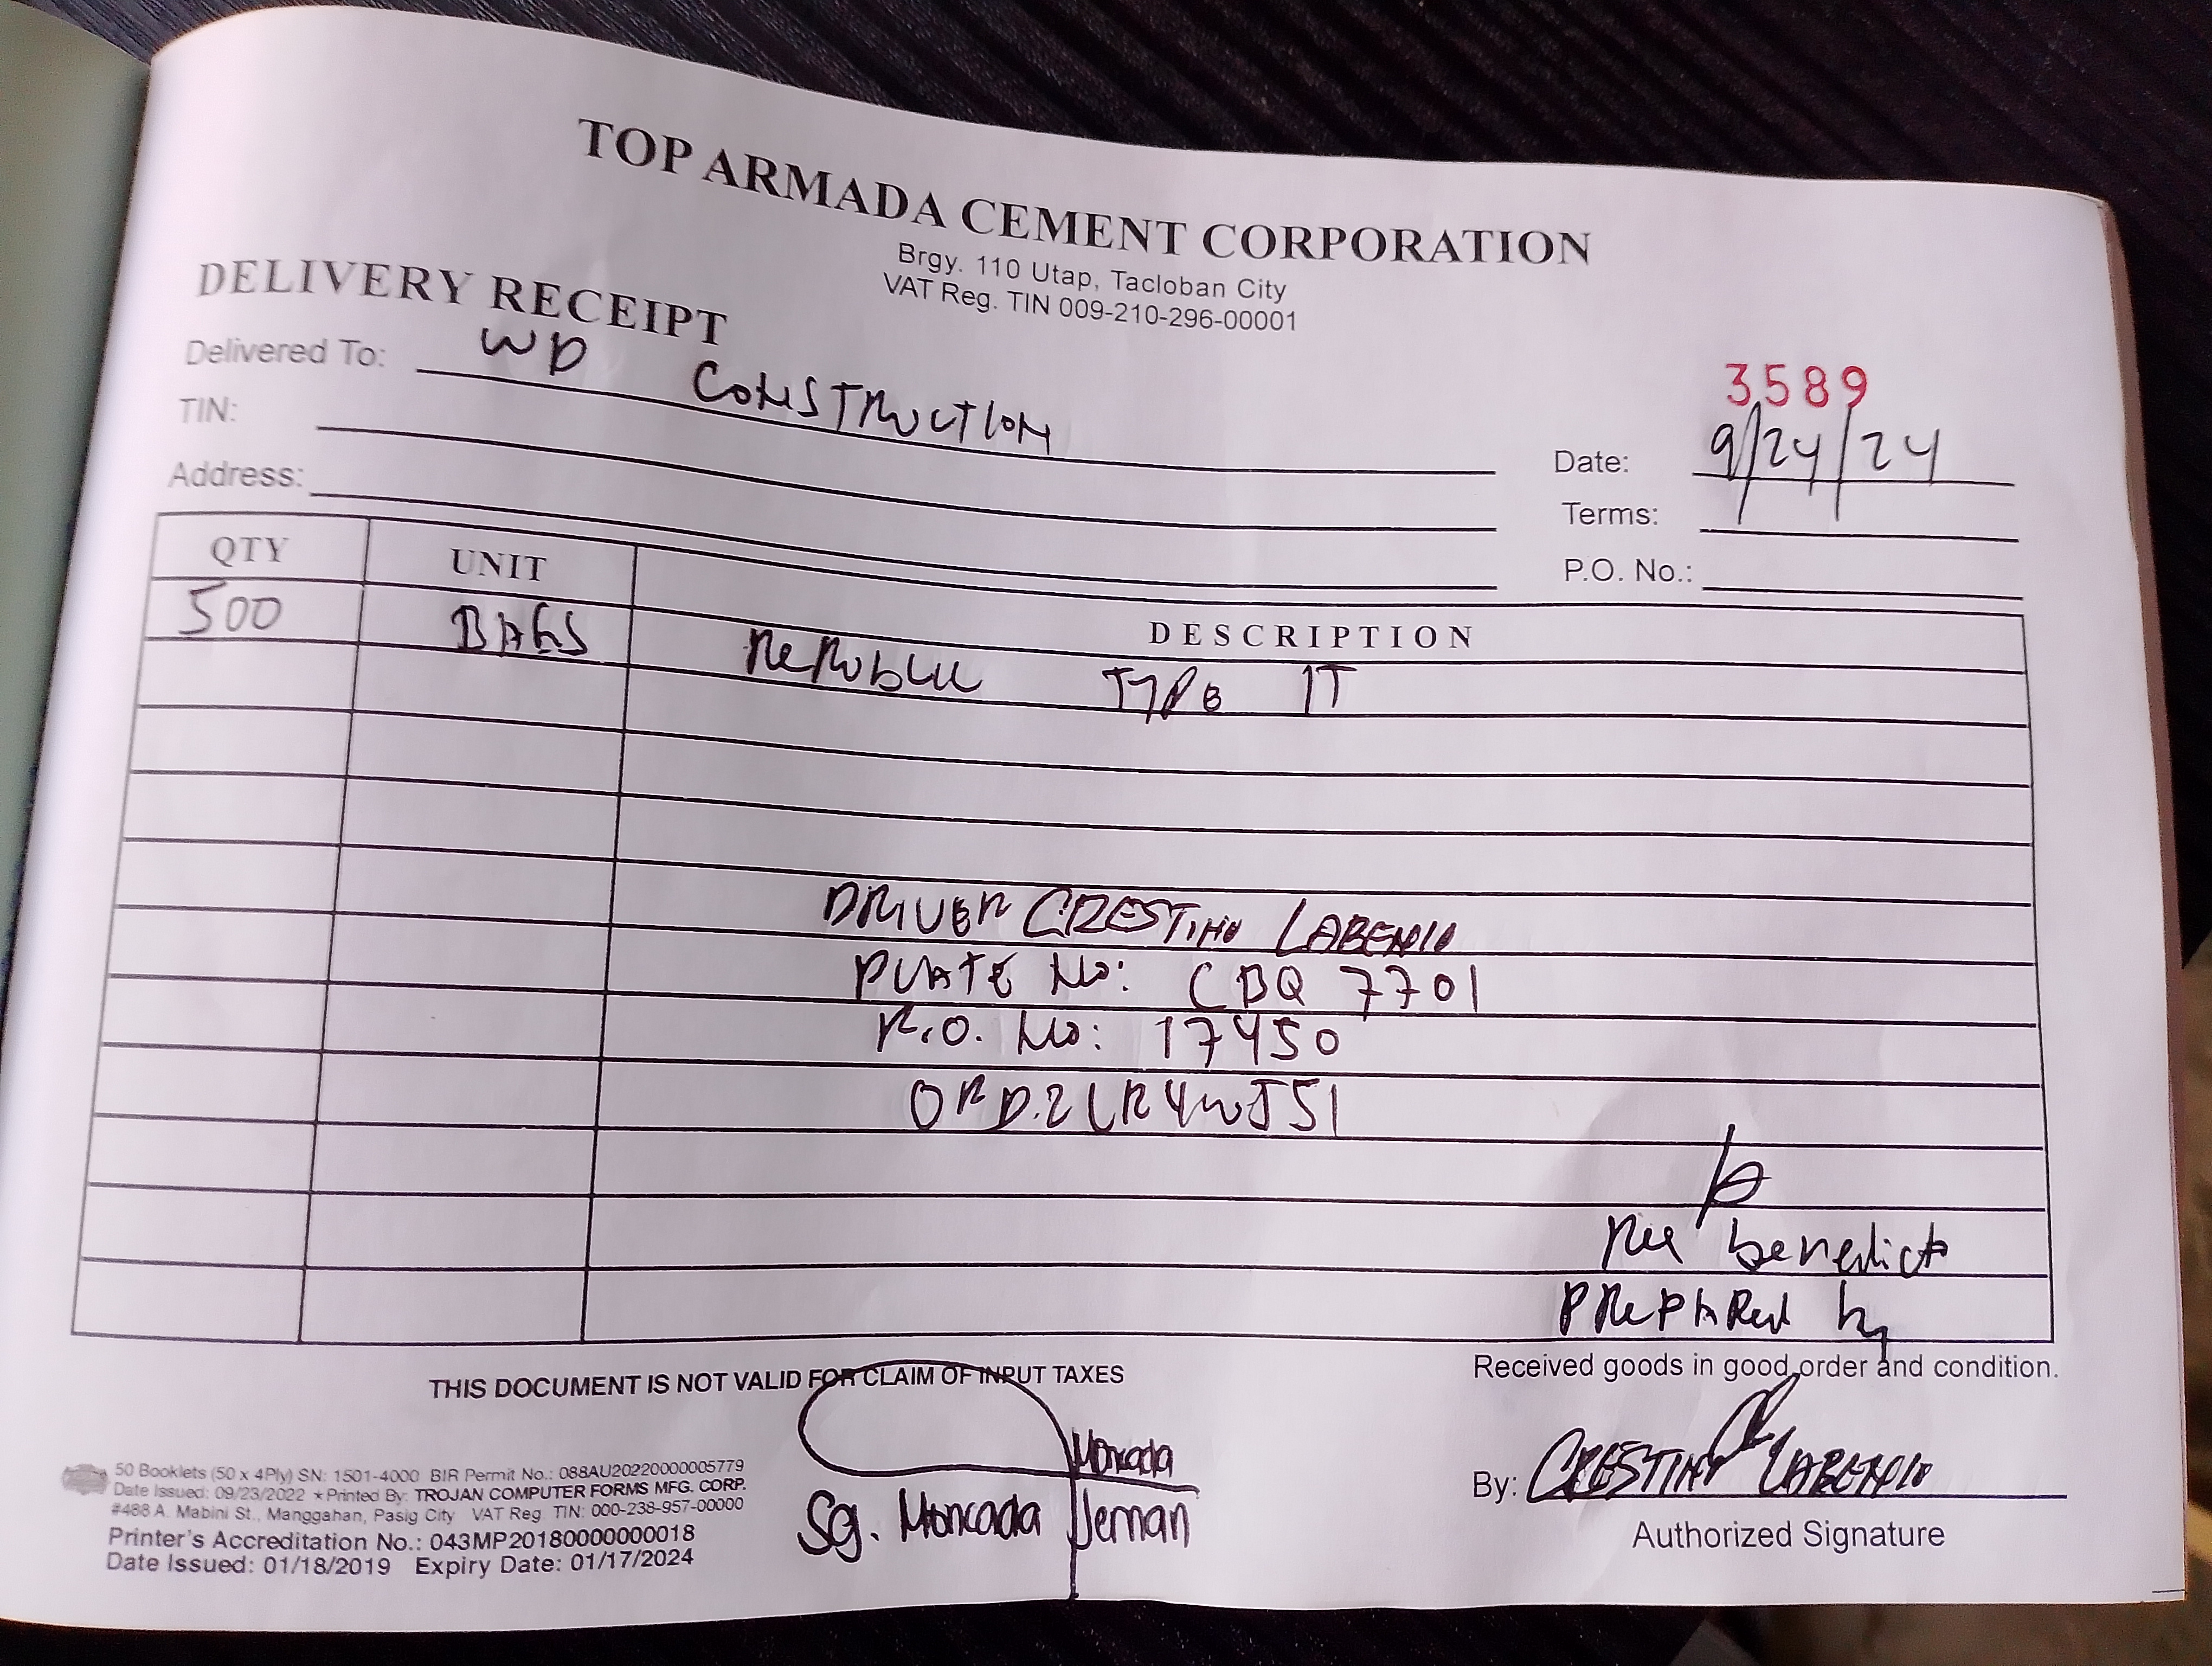 TOP ARMADA CEMENT CORPORATION
Brgy. 110 Utap, Tacloban City
VAT Reg. TIN 009-210-296-00001
DELIVERY RECEIPT
3589
Delivered To: WD CONSTRUCTION
Date: 9/24/24
TIN:
Terms:
Address:
P.O. No.:
QTY UNIT DESCRIPTION
500 BAGS REPUBLIC TYPE 1T
DRIVER CRESTINO LABENDIO
PLATE No: CBQ 7701
P.O. No: 17450
benedicto
PREPARED by
THIS DOCUMENT IS NOT VALID FOR CLAIM OF INPUT TAXES
Received goods in good order and condition.
Moncada
Sg. Moncada Jernan
By: CRESTINO LABENDIO
Authorized Signature
50 Booklets (50 x 4Ply) SN: 1501-4000 BIR Permit No.: 088AU20220000005779
Date Issued: 09/23/2022 ★Printed By: TROJAN COMPUTER FORMS MFG. CORP.
#488 A. Mabini St., Manggahan, Pasig City VAT Reg TIN: 000-238-957-00000
Printer's Accreditation No.: 043MP20180000000018
Date Issued: 01/18/2019 Expiry Date: 01/17/2024